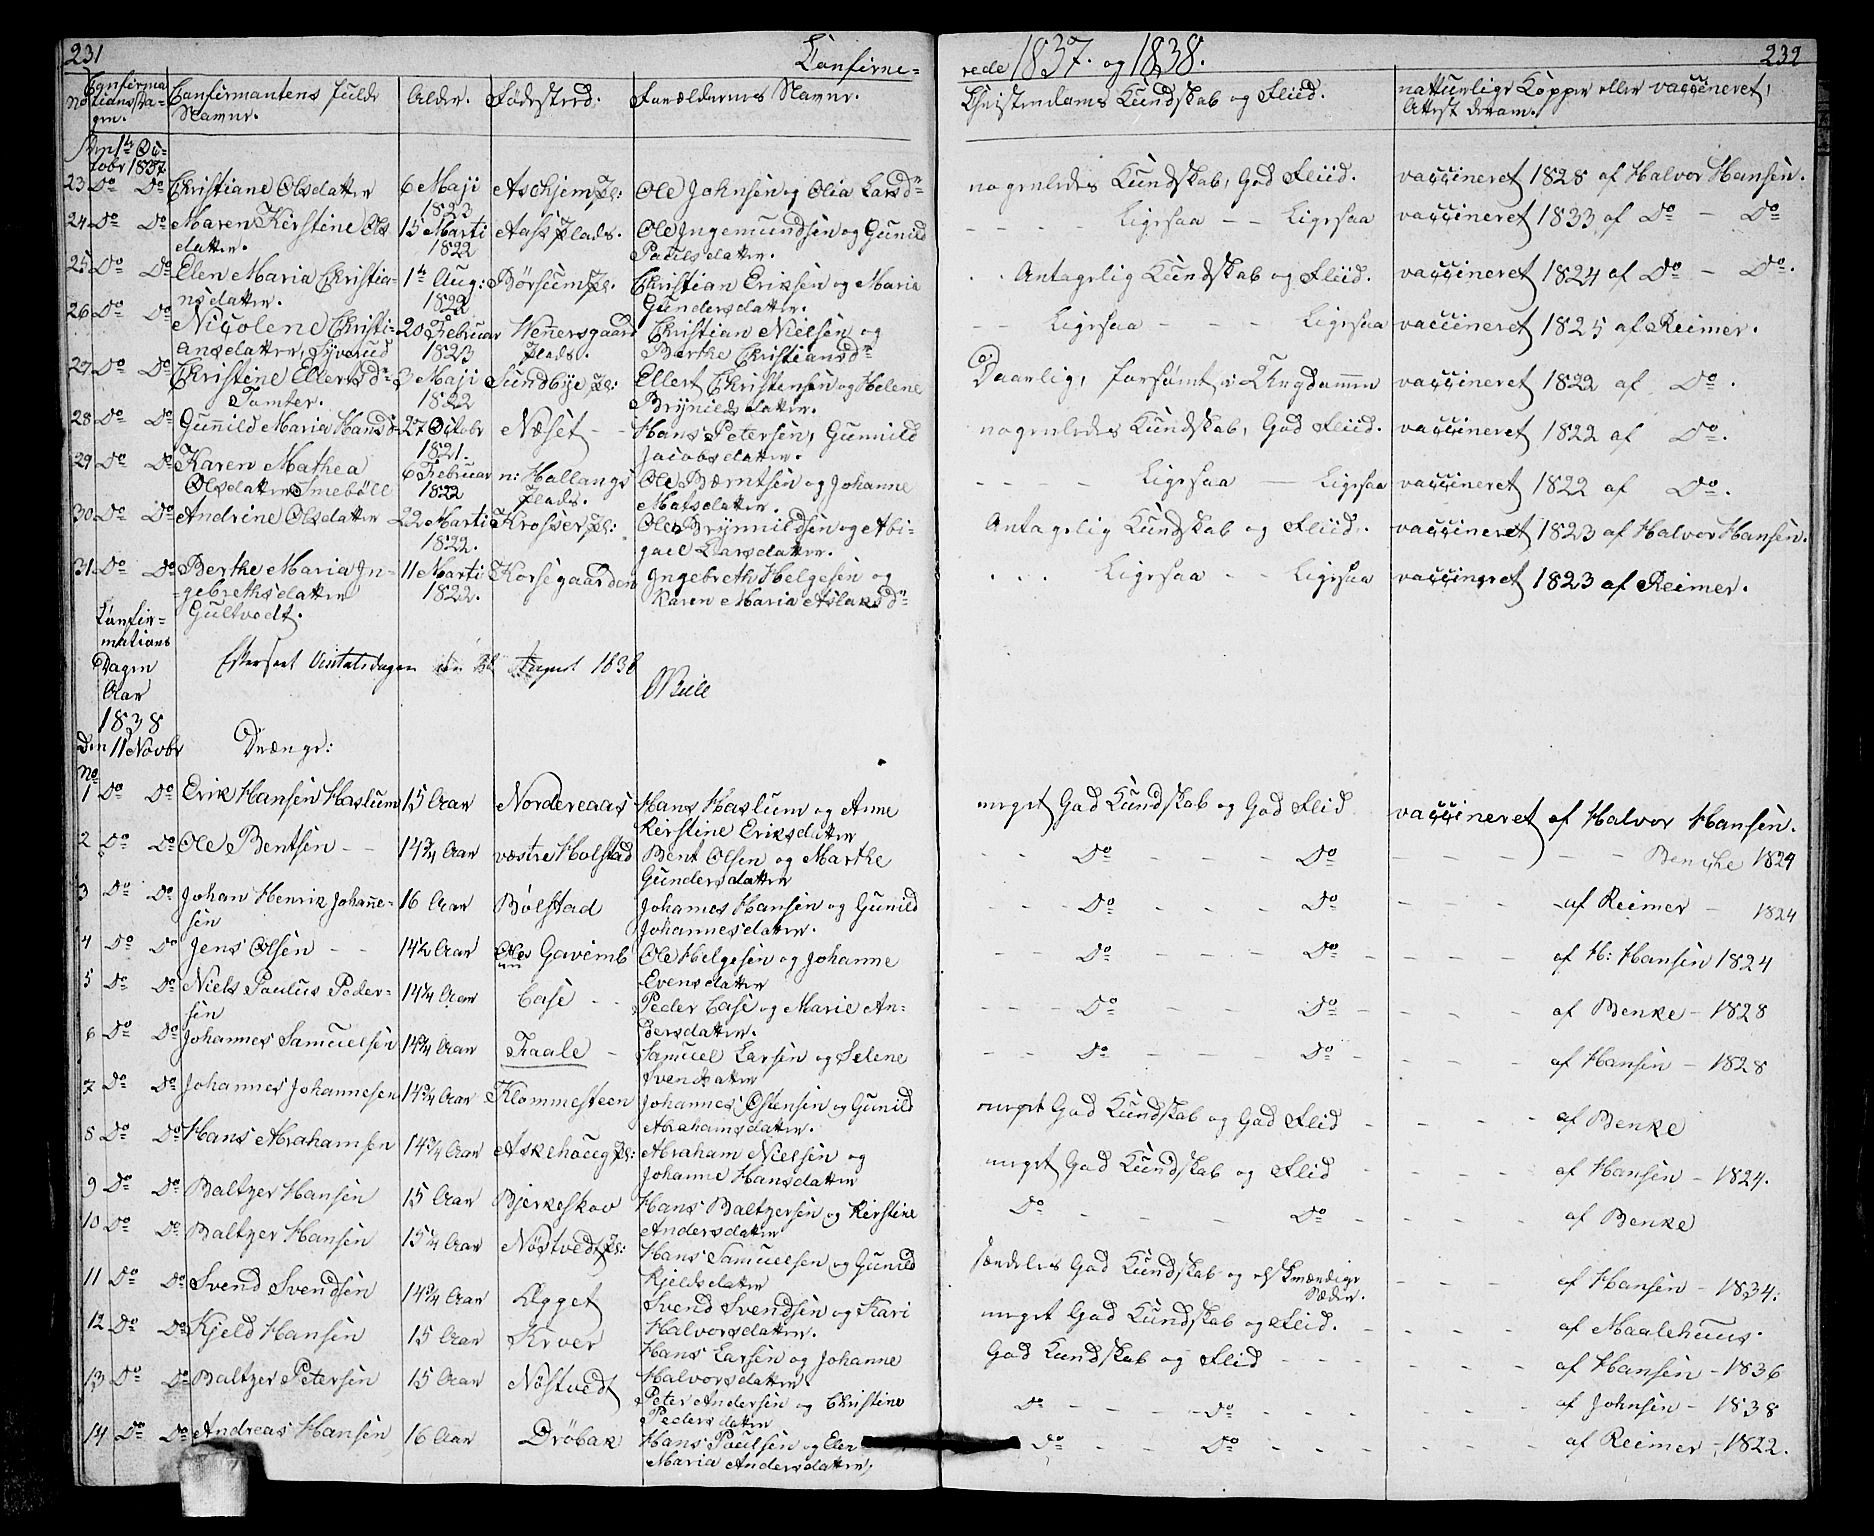 231
Confirme-
No
Confirma
tions Da-
gen.
Confirmantens fulde
Navne.
Alder.
Födested:
Forældrenes Navne.
Den 1te Oc-
tobr 1837.
23 Do Do Christiane Olsdatter 6 Maji 1823 Askjem Pl: Ole Johnsen og Olia Larsd.
24 Do Do Maren Kirstine Ols 15 Marti Aass Plads. Ole Ingemundsen og Gunild
datter. 1822 Paulsdatter.
25 Do Do Elen Maria Christia- 1te Aug: Börsum Pl. Christian Eriksen og Maria
nsdatter. 1822 Gundersdatter.
26 Do Do Nicolene Christi- 20 Februar Wennersgaard Christian Nielsen og
ansdatter, Syverud 1823 Plads. Berthe Christiansd.
27 Do Do Christine Ellertsd. Maji Sundbye Pl: Ellert Christensen og Helene
Tomter. 1822 Brynilds datter.
28 Do Do Gunnild Maria Hansd. 27 Octobr Næset Hans Petersen, Gunnild
1821. Jacobsdatter.
29 Do Do Karen Mathea 6 Februar n: Hallangs Ole Berntsen og Johanne
Olsdatter Smeböll 1822 Plads. Matsdatter.
30 Do Do Andrine Olsdatter 22 Marti Krosser Pl: Ole Brynnildsen og Abi-
1822. gael Larsdatter.
31 Do Do Berthe Maria In- 11 Marti Korsegaarden Ingebreth Helgesen og
gebrethsdatter 1822. Karen Maria Aslaksd.
Gultvedt.
Confir-
mations
Dagen
Aar
1838
Den 11 Novbr
Efterseet Visitatsdagen den August 1838
Drænge:
No
1 Do Do Erik Hansen Haslum 15 Aar Nordereaas Hans Haslum og Anne
Kirstine Eriksdatter
2 Do Do Ole Bentsen 14 3/4 Aar væstre Holstad Bent Olsen og Marthe
Gundersdatter
3 Do Do Johan Henrik Johanne- 16 Aar Bölstad Johannes Hansen og Gunild
sen Johannesdatter.
4 Do Do Jens Olsen 14 1/2 Aar Gavemb Ole Helgesen og Johanne
Evensdatter
5 Do Do Niels Paulus Peder- 14 3/4 Aar Case Peder Case og Marie An-
sen dersdatter.
6 Do Do Johannes Samuelsen 14 3/4 Aar Fraale Samuel Larsen og Selene
Svendsatter
7 Do Do Johannes Johannesen 14 3/4 Aar Klommesteen Johannes Ostensen og Gunild
Abrahamsdatter.
8 Do Do Hans Abrahamsen 14 3/4 Aar Askehoug Pl: Abraham Nielsen og
Johanne Hansdatter
9 Do Do Baltzer Hansen 15 Aar Bjerkeskov Hans Baltzersen og Kirstine
Andersdatter
10 Do Do Baltzer Hansen 15 1/4 Aar Nöstvedt Pl: Hans Samuelsen og Gunild
Kjeldsdatter
11 Do Do Svend Svendsen 14 3/4 Aar Egget Svend Svendsen og Kari
Halvorsdatter.
12 Do Do Kjeld Hansen 15 Aar Kroer Hans Larsen og Johanne
Halvorsdatter.
13 Do Do Baltzer Petersen 15 Aar Nöstvedt Peter Andersen og Christine
Pedersdatter
14 Do Do Andreas Hansen 16 Aar Dröbak Hans Paulsen og Elen
Maria Andersdatter,
rede 1837. og 1838.
232
Christendoms Kundskab og Fliid.
naturlige Kopper eller vaccineret,
Attest derom.
nogenledes Kundskab, God Fliid. vaccineret 1828 af Halvor Hansen.
Ligesaa - - Ligesaa vaccineret 1833 af Do - Do
Antagelig Kundskab og Fliid. vaccineret 1824 af Do - Do.
Ligesaa - - - Ligesaa vaccineret 1825 af Reimer.
Daarlig, forsömt i Ungdommen vaccineret 1822 af Do.
nogenledes Kundskab, God Fliid. vaccineret 1822 af Do.
Ligesaa - Ligesaa vaccineret 1822 af Do.
Antagelig Kundskab og Fliid. vaccineret 1823 af Halvor Hansen.
Ligesaa - - Ligesaa vaccineret 1823 af Reimer.
meget God Kundskab og God Flid vaccineret af Halvor Hansen.
Do Do 1824
Do Do af Reimer - 1824
Do Do af H: Hansen 1824
Do Do af Benke - 1828
Do Do af Hansen - 1828
meget God Kundskab og God Flid af Benke
meget God Kundskab og Flid af Hansen - 1824.
Do Do af Benke
særdeles God Kundskab og elskværdige
Sæder. af Hansen - 1834:
meget God Kundskab og Flid. af Maalehuus.
God Kundskab og Flid af Hansen - 1836
Do Do af Johnsen - 1838
Do Do af Reimer - 1822.